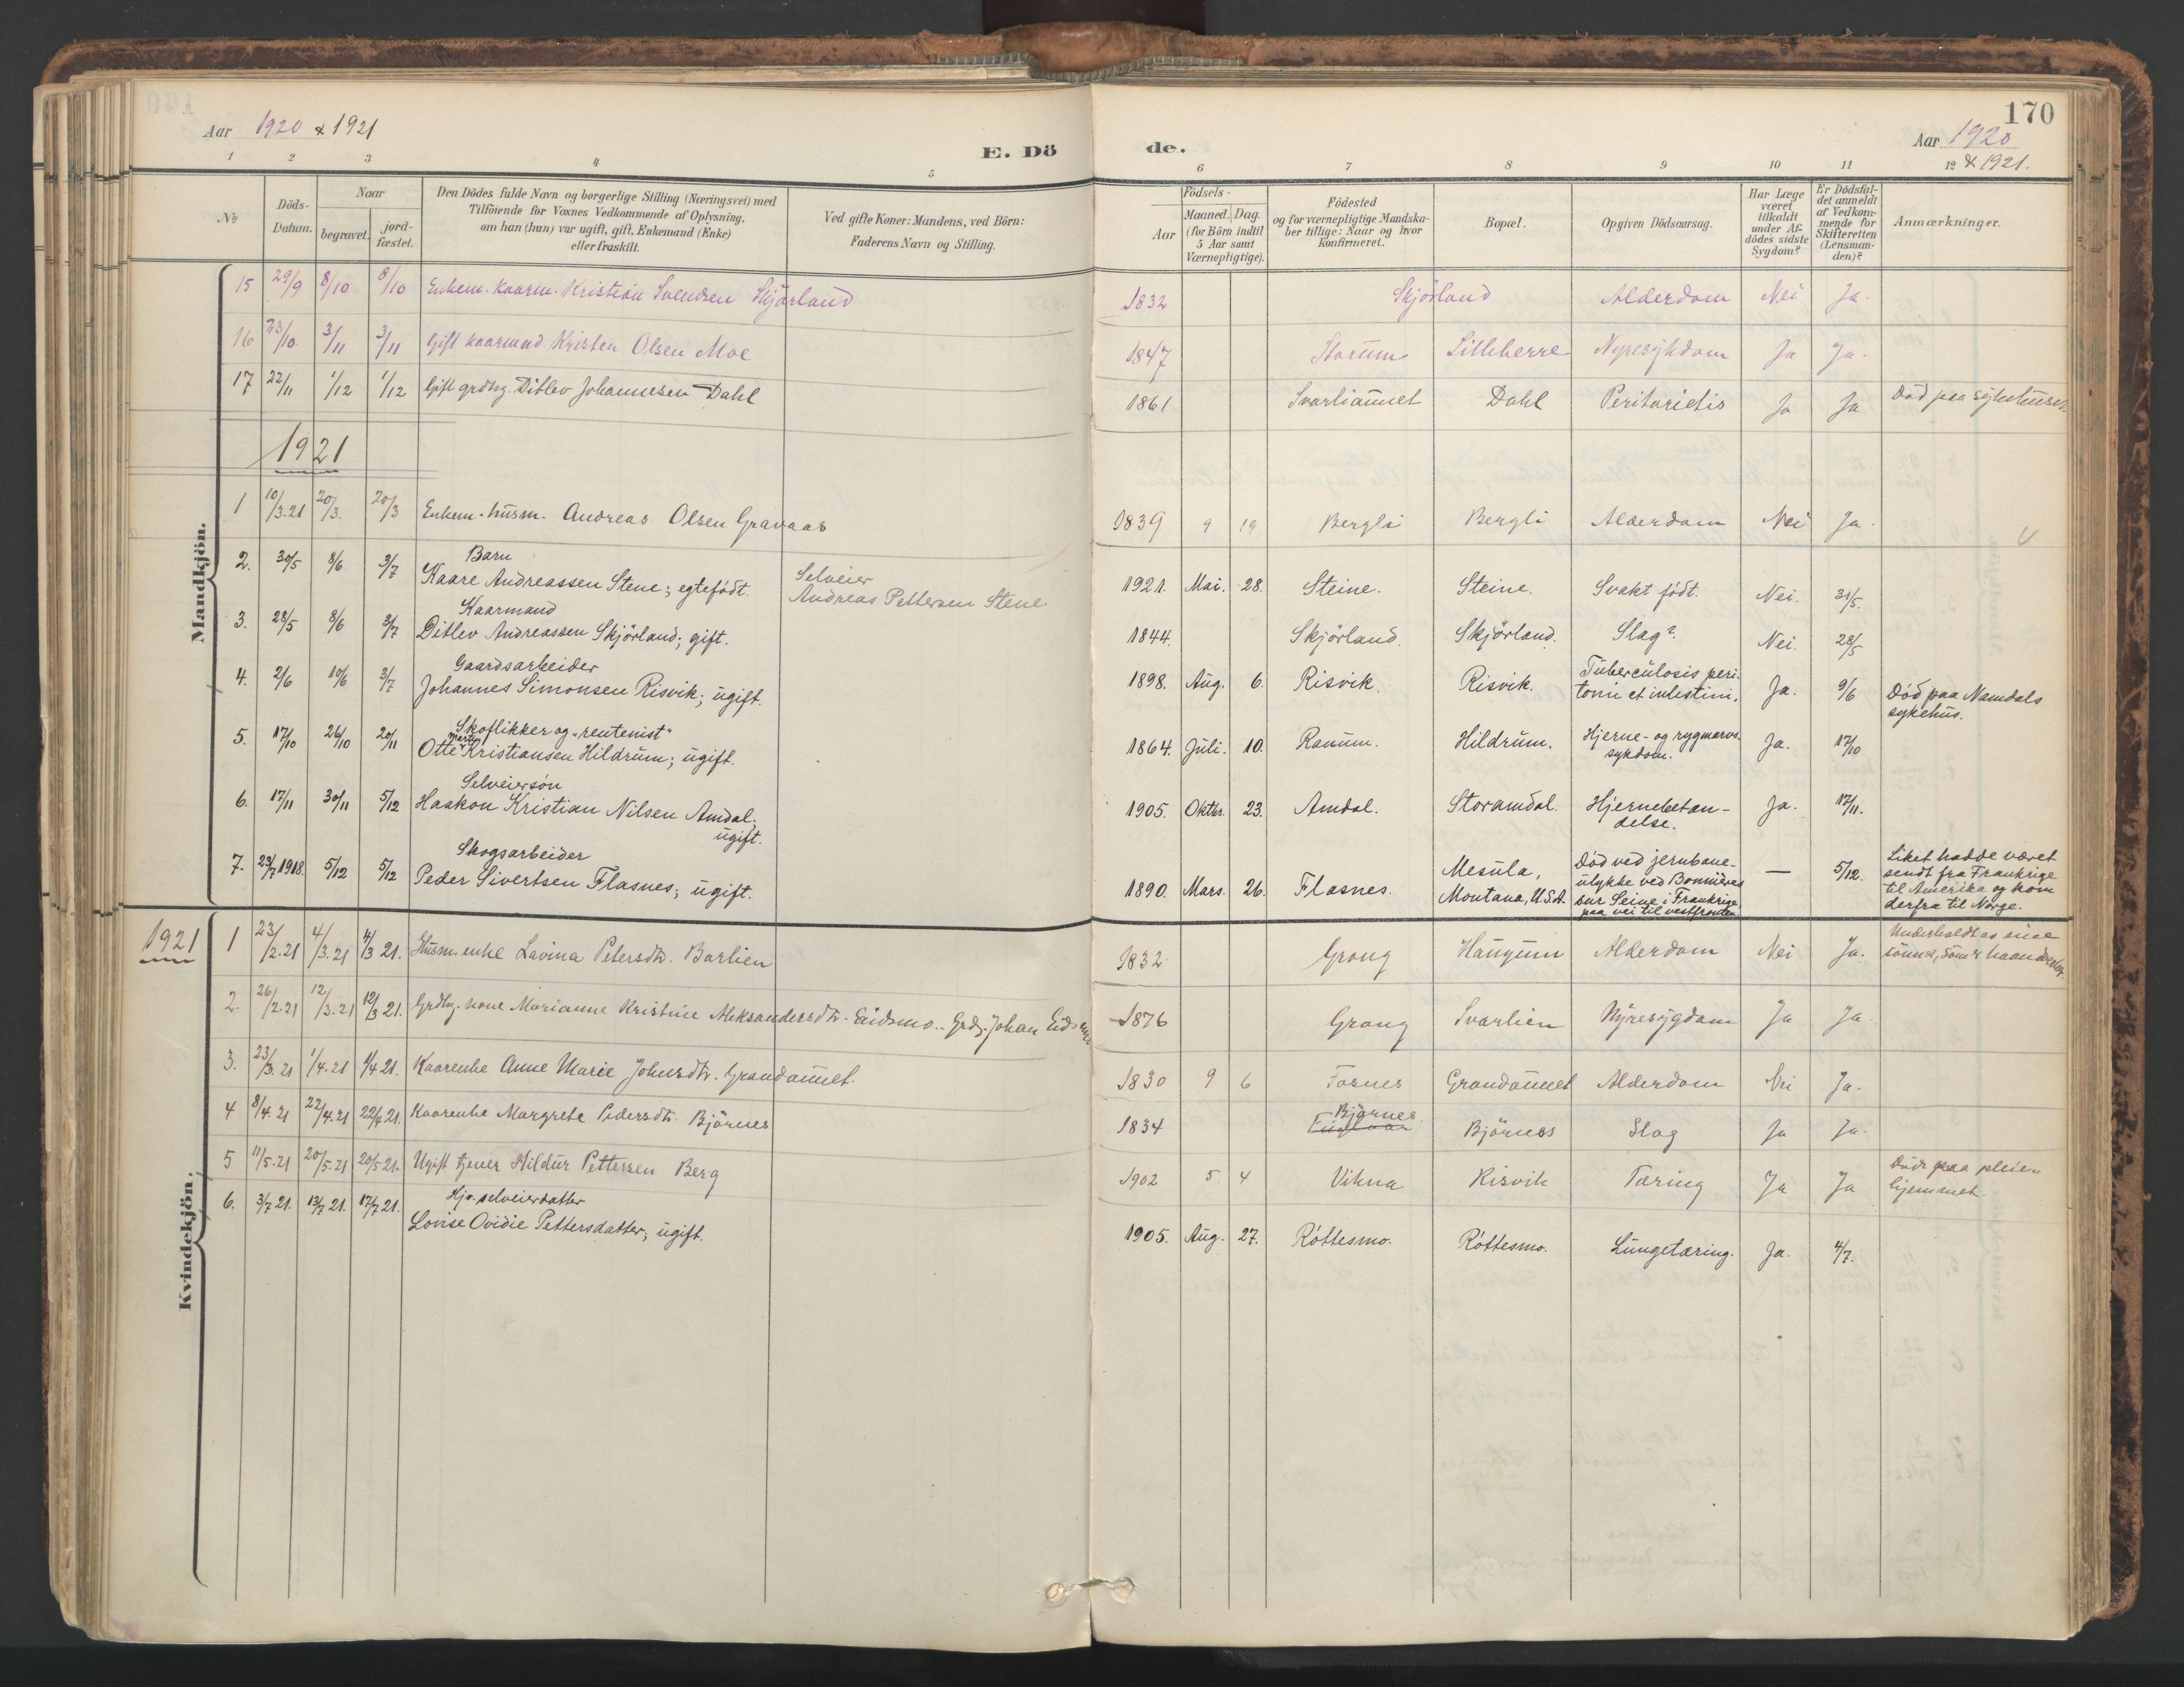 170
Aar 1920 & 1921
E. Döde.
Aar 1920 & 1921.
1 2 3 4 5 6 7 8 9 10 11 12
No
Döds-Datum.
Naar
begravet.
jord-fæstet.
Den Dödes fulde Navn og borgerlige Stilling (Næringsvei) med
Tilföiende for Voxnes Vedkommende af Oplysning,
om han (hun) var ugift, gift, Enkemand (Enke)
eller fraskilt.
Ved gifte Koner: Mandens, ved Börn:
Faderens Navn og Stilling.
Födsels-
Aar
Maaned. Dag.
(for Börn indtil
5 Aar samt
Værnepligtige).
Födested
og for værnepligtige Mandska-
ber tillige: Naar og hvor
konfirmeret.
Bopæl.
Opgiven Dödsaarsag.
Har Læge
været
tilkaldt
under Af-
dödes sidste
Sygdom?
Er Dödsfal-
det anmeldt
af Vedkom-
mende for
Skifteretten
(Lensman-
den)?
Anmærkninger.
Mandkjön.
15 29/9 8/10 8/10 Enkem. kaarm. Kristian Svendsen Skjørland 1832 Skjørland Alderdom Nei Ja.
16 23/10 3/11 3/11 Gift kaarmand Kristen Olsen Moe 1847 Storum Lilleberre Nyresykdom Ja Ja.
17 22/11 1/12 1/12 Gift grdbg. Ditlev Johannesen Dahl 1861 Svarliaunet Dahl Ja Ja Död paa sykehuset
1921
1 10/3.21 20/3. 20/3 Enkem. husm. Andreas Olsen Gravaas 1839 9 19 Bergli Bergli Alderdom Nei Ja.
2. 30/5 8/6 3/7 Barn
Kaare Andreassen Stene; egtefödt. Selveier
Andreas Pettersen Stene 1921. Mai. 28. Steine. Steine. Svakt födt. Nei. 31/5.
3. 28/5 8/6 3/7 Kaarmand
Ditlev Andreassen Skjörland; gift. 1844. Skjörland. Skjörland. Slag? Nei. 28/5
4. 2/6 10/6 3/7 Gaardsarbeider
Johannes Simonsen Risvik; ugift. 1898. Aug. 6. Risvik. Risvik. Tuberculosis peri-
tonii et intestini. Ja. 9/6 Död paa Namdals
sykehus.
5. 17/10 26/10 20/11 Skoflikker og "rentenist"
Martin
Otte Kristiansen Hildrum; ugift. 1864. Juli. 10. Ranum. Hildrum. Hjerne- og rygmarvs-
sykdom. Ja. 17/10
6. 17/11 30/11 5/12 Selveiersön
Haakon Kristian Nilsen Amdal;
ugift. 1905. Oktbr. 23. Amdal. Storamdal. Hjernebetæn-
delse. Ja. 17/11.
7. 23/7 1918. 5/12 5/12 Skogsarbeider
Peder Sivertsen Flasnes; ugift. 1890. Mars. 26. Flasnes. Mesula,
Montana, U.S.A. Död ved jernbane-
ulykke ved Bonnières
sur Seine i Frankrige
paa vei til vestfronten. — 5/12. Liket hadde været
sendt fra Frankrige
til Amerika og kom
derfra til Norge.
Kvindekjön.
1921
1 23/2.21 4/3.21 4/3 21. Husm. enke Lavina Petersdtr. Barlien 1832 Grong Haugum Alderdom Nei Ja. Underholdt av sine
sönner,
2. 26/2.21 12/3.21 12/3 21. Grdbg. kone Marianne Kristine Aleksandersdtr. Eidsmo.. Grdbg. Johan Eidsmo 1876 Grong Svarlien Nyresygdom Ja Ja
3. 23/3.21 1/4.21 1/4 21. Kaarenke Anne Marie Johnsdtr. Grandaunet. 1830 9 6 Fosnes Grandaunet Alderdom Nei Ja.
4 8/4.21 22/4.21 22/4 21. Kaarenke Margrete Pedersdtr. Björnes 1834 Björnes Björnes Slag Ja Ja.
5 11/5.21 20/5.21 20/5 21. Ugift tjener Hildur Pettersen Berg 1902 5 4 Vikna Risvik Tæring Ja Ja Död paa pleie-
hjemmet.
6. 3/7 21. 13/7 21. 17/7 21. Hjv. selveierdatter
Lovise Ovidie Pettersdatter; ugift. 1905. Aug. 27. Röttesmo. Röttesmo. Lungetæring. Ja. 4/7.